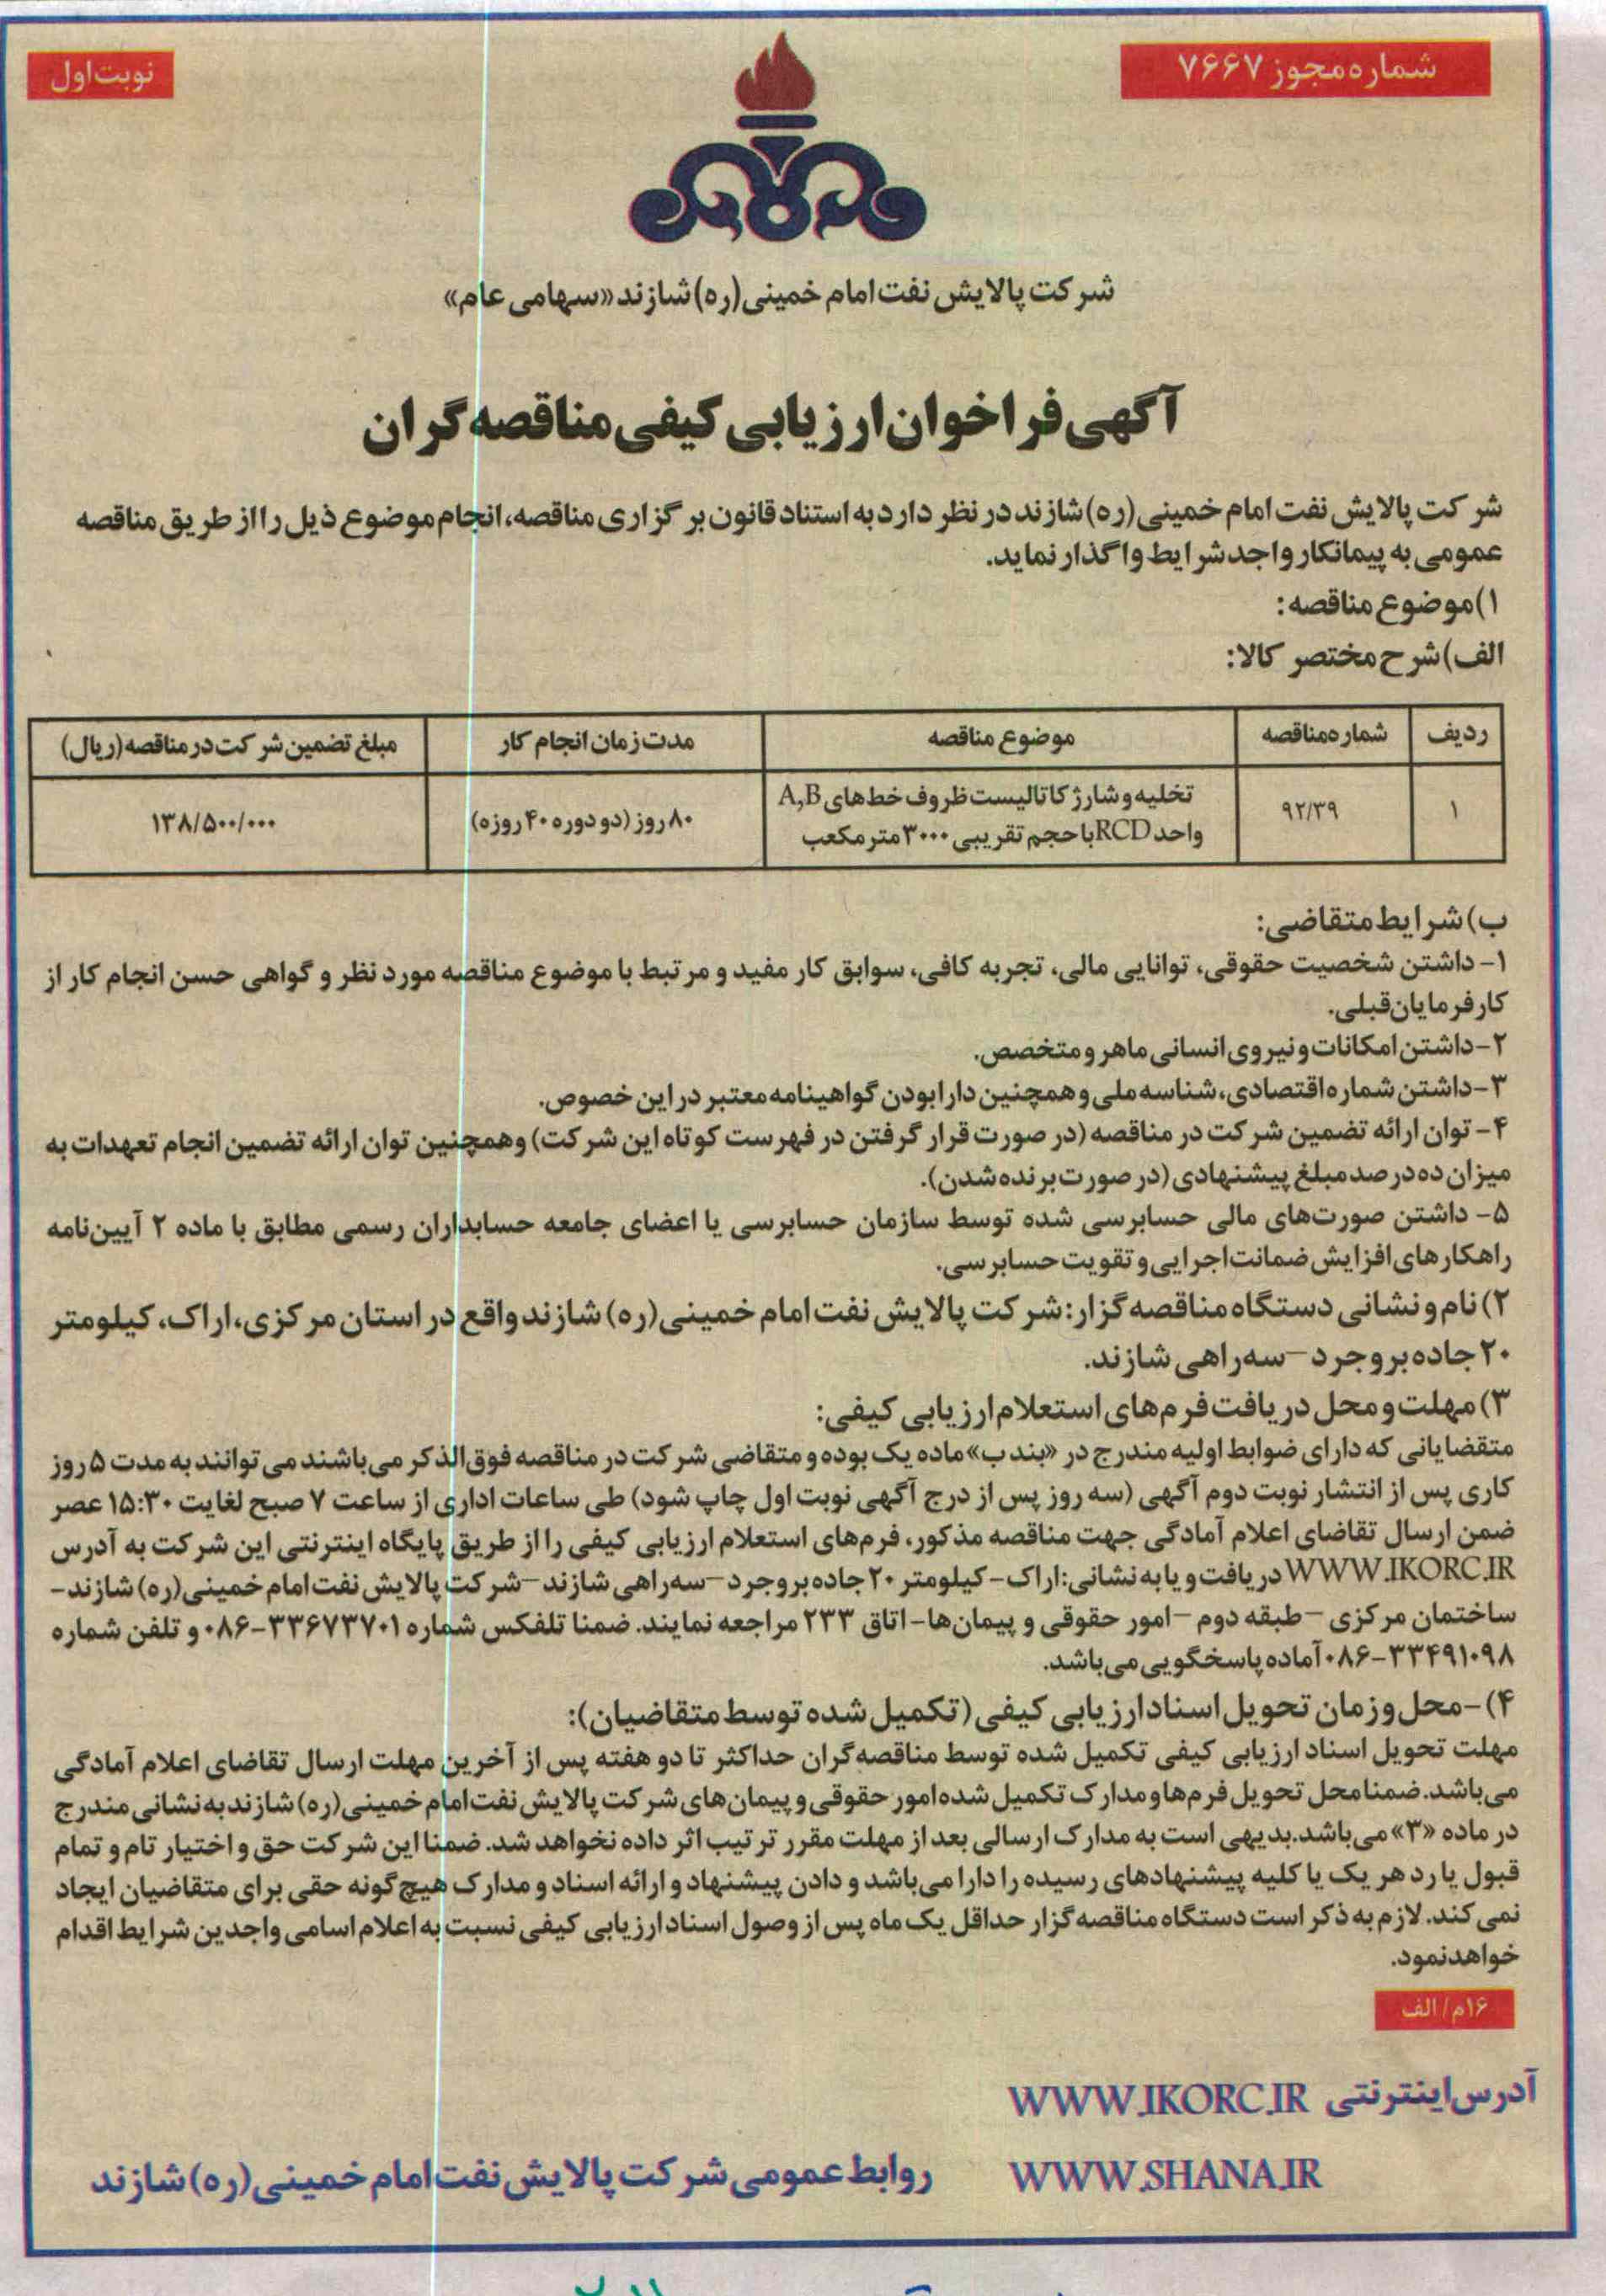 شماره مجوز ۷۶۶۷
نوبت اول
شرکت پالایش نفت امام خمینی (ره) شازند «سهامی عام»
آگهی فراخوان ارزیابی کیفی مناقصه گران
شرکت پالایش نفت امام خمینی (ره) شازند در نظر دارد به استناد قانون برگزاری مناقصه، انجام موضوع ذیل را از طریق مناقصه
عمومی به پیمانکار واجد شرایط واگذار نماید.
۱) موضوع مناقصه:
الف) شرح مختصر کالا:
ردیف شماره مناقصه موضوع مناقصه مدت زمان انجام کار مبلغ تضمین شرکت در مناقصه (ریال)
۱ ۹۲/۳۹ تخلیه و شارژ کاتالیست ظروف خط های A,B ۸۰ روز (دو دوره ۴۰ روزه) ۱۳۸/۵۰۰/۰۰۰
واحد RCD با حجم تقریبی ۳۰۰۰ متر مکعب
ب) شرایط متقاضی:
۱- داشتن شخصیت حقوقی، توانایی مالی، تجربه کافی، سوابق کار مفید و مرتبط با موضوع مناقصه مورد نظر و گواهی حسن انجام کار از
کارفرمایان قبلی.
۲- داشتن امکانات و نیروی انسانی ماهر و متخصص.
۳- داشتن شماره اقتصادی، شناسه ملی و همچنین دارا بودن گواهینامه معتبر در این خصوص.
۴- توان ارائه تضمین شرکت در مناقصه (در صورت قرار گرفتن در فهرست کوتاه این شرکت) وهمچنین توان ارائه تضمین انجام تعهدات به
میزان ده درصد مبلغ پیشنهادی (در صورت برنده شدن).
۵- داشتن صورت‌های مالی حسابرسی شده توسط سازمان حسابرسی یا اعضای جامعه حسابداران رسمی مطابق با ماده ۲ آیین‌نامه
راهکارهای افزایش ضمانت اجرایی و تقویت حسابرسی.
۲) نام و نشانی دستگاه مناقصه گزار: شرکت پالایش نفت امام خمینی (ره) شازند واقع در استان مرکزی، اراک، کیلومتر
۲۰ جاده بروجرد – سه راهی شازند.
۳) مهلت و محل دریافت فرم های استعلام ارزیابی کیفی:
متقضایانی که دارای ضوابط اولیه مندرج در «بند ب» ماده یک بوده و متقاضی شرکت در مناقصه فوق الذکر می باشند می توانند به مدت ۵ روز
کاری پس از انتشار نوبت دوم آگهی (سه روز پس از درج آگهی نوبت اول چاپ شود) طی ساعات اداری از ساعت ۷ صبح لغایت ۱۵:۳۰ عصر
ضمن ارسال تقاضای اعلام آمادگی جهت مناقصه مذکور، فرم‌های استعلام ارزیابی کیفی را از طریق پایگاه اینترنتی این شرکت به آدرس
WWW.IKORC.IR دریافت و یا به نشانی: اراک - کیلومتر ۲۰ جاده بروجرد – سه راهی شازند – شرکت پالایش نفت امام خمینی (ره) شازند -
ساختمان مرکزی – طبقه دوم – امور حقوقی و پیمان‌ها - اتاق ۲۳۳ مراجعه نمایند. ضمنا تلفکس شماره ۳۳۶۷۳۷۰۱-۰۸۶ و تلفن شماره
۳۳۴۹۱۰۹۸-۰۸۶ آماده پاسخگویی می باشد.
۴)- محل و زمان تحویل اسناد ارزیابی کیفی (تکمیل شده توسط متقاضیان):
مهلت تحویل اسناد ارزیابی کیفی تکمیل شده توسط مناقصه‌گران حداکثر تا دو هفته پس از آخرین مهلت ارسال تقاضای اعلام آمادگی
می باشد. ضمنا محل تحویل فرم ها و مدارک تکمیل شده امور حقوقی و پیمان های شرکت پالایش نفت امام خمینی (ره) شازند به نشانی مندرج
در ماده «۳» می باشد. بدیهی است به مدارک ارسالی بعد از مهلت مقرر ترتیب اثر داده نخواهد شد. ضمنا این شرکت حق و اختیار تام و تمام
قبول یا رد هر یک یا کلیه پیشنهادهای رسیده را دارا می باشد و دادن پیشنهاد و ارائه اسناد و مدارک هیچ گونه حقی برای متقاضیان ایجاد
نمی کند. لازم به ذکر است دستگاه مناقصه گزار حداقل یک ماه پس از وصول اسناد ارزیابی کیفی نسبت به اعلام اسامی واجدین شرایط اقدام
خواهد نمود.
۱۶م/الف
آدرس اینترنتی WWW.IKORC.IR
WWW.SHANA.IR
روابط عمومی شرکت پالایش نفت امام خمینی (ره) شازند